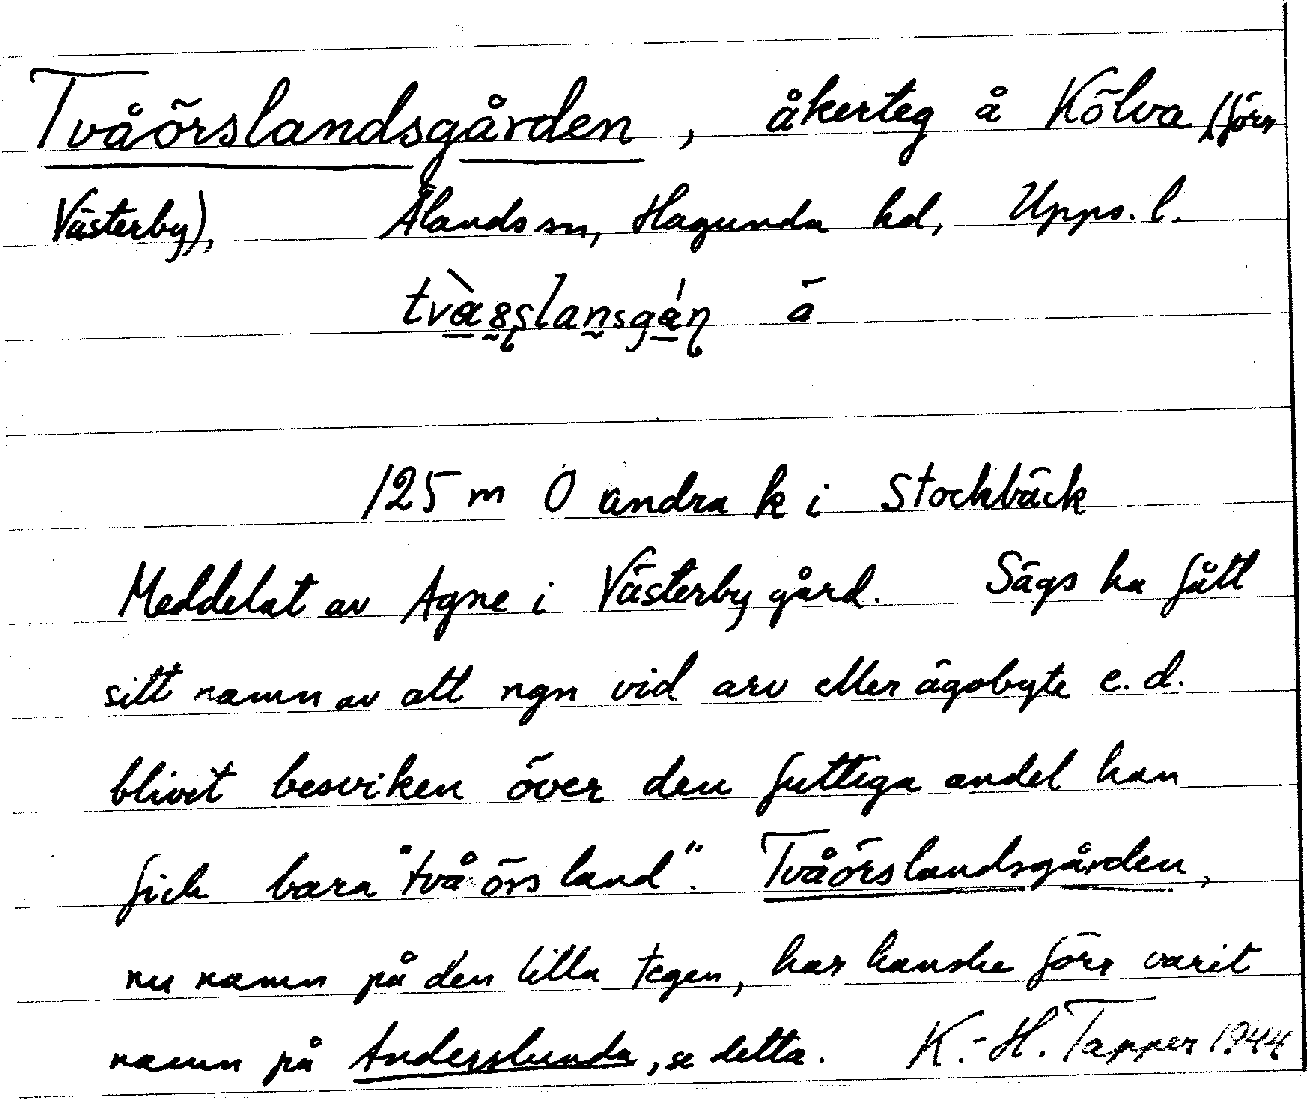 Tvåörslandsgården, åkerteg å Kölva (förr
Västerby), Ålands sn, Hagunda hd, Upps. l.
á
125 m O andra k i Stockbäck
Meddelat av Agne i Västerby gård. Sägs ha fått
sitt namn av att ngn vid arv eller ägobyte e.d.
blivit besviken över den futtiga andel han
fick bara "två örs land". Tvåörslandsgården,
nu namn på den lilla tegen, har kanske förr varit
namn på Anderslunda, se detta. K.-H. Tapper 1944